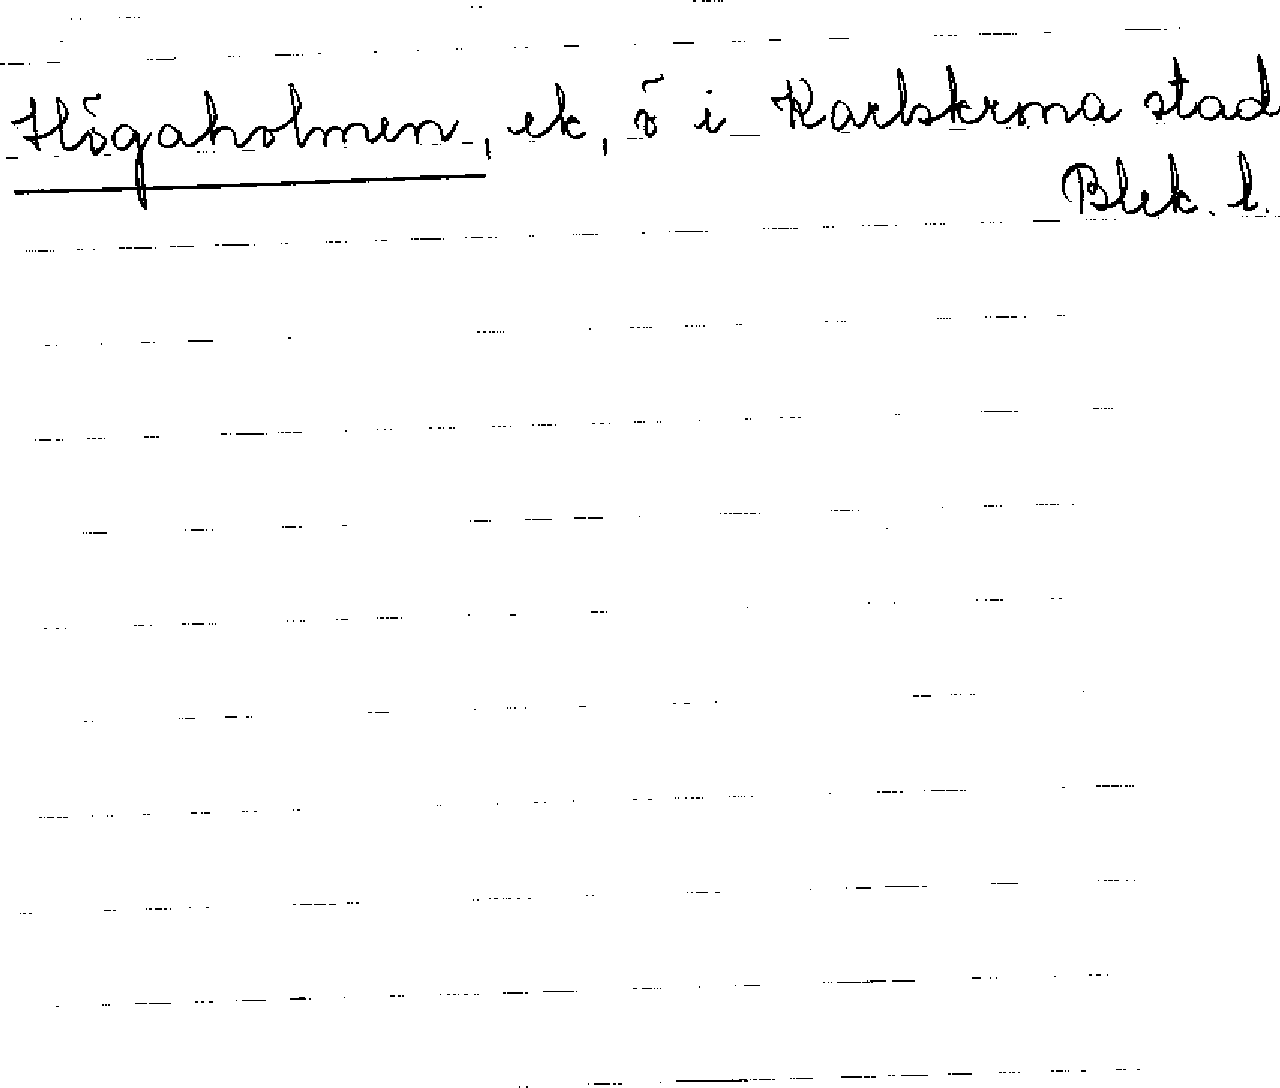 Högaholmen, ek, ö i Karlskrona stad
Blek. l.